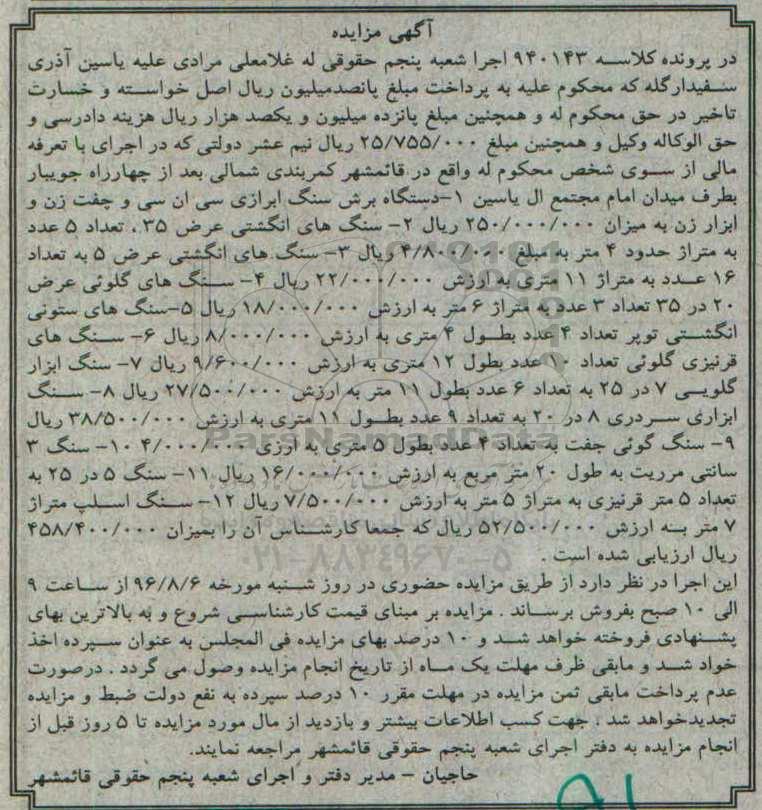 آگهی مزایده
در پرونده کلاسه ۹۴۰۱۴۳ اجرا شعبه پنجم حقوقی له غلامعلی مرادی علیه یاسین آذری
سفیدارگله که محکوم علیه به پرداخت مبلغ پانصدمیلیون ریال اصل خواسته و خسارت
تاخیر در حق محکوم له و همچنین مبلغ پانزده میلیون و یکصد هزار ریال هزینه دادرسی و
حق الوکاله وکیل و همچنین مبلغ ۲۵/۷۵۵/۰۰۰ ریال نیم عشر دولتی که در اجرای با تعرفه
مالی از سوی شخص محکوم له واقع در قائمشهر کمربندی شمالی بعد از چهارراه جویبار
بطرف میدان امام مجتمع ال یاسین ۱-دستگاه برش سنگ ابرازی سی ان سی و چفت زن و
ابزار زن به میزان ۲۵۰/۰۰۰/۰۰۰ ریال ۲- سنگ های انگشتی عرض ۳۵ ، تعداد ۵ عدد
به متراژ حدود ۴ متر به مبلغ ۴/۸۰۰/۰۰۰ ریال ۳- سنگ های انگشتی عرض ۵ به تعداد
۱۶ عدد به متراژ ۱۱ متری به ارزش ۲۲/۰۰۰/۰۰۰ ریال ۴- سنگ های گلوئی عرض
۲۰ در ۳۵ تعداد ۳ عدد به متراژ ۶ متر به ارزش ۱۸/۰۰۰/۰۰۰ ریال ۵-سنگ های ستونی
انگشتی توپر تعداد ۴ عدد بطول ۴ متری به ارزش ۸/۰۰۰/۰۰۰ ریال ۶- سنگ های
قرنیزی گلوئی تعداد ۱۰ عدد بطول ۱۲ متری به ارزش ۹/۶۰۰/۰۰۰ ریال ۷- سنگ ابزار
گلویی ۷ در ۲۵ به تعداد ۶ عدد بطول ۱۱ متر به ارزش ۲۷/۵۰۰/۰۰۰ ریال ۸- سنگ
ابزاری سردری ۸ در ۲۰ به تعداد ۹ عدد بطول ۱۱ متری به ارزش ۳۸/۵۰۰/۰۰۰ ریال
۹- سنگ گوئی جفت به تعداد ۴ عدد بطول ۵ متری به ارزی ۴/۰۰۰/۰۰۰ ۱۰- سنگ ۳
سانتی مرریت به طول ۲۰ متر مربع به ارزش ۱۶/۰۰۰/۰۰۰ ریال ۱۱- سنگ ۵ در ۲۵ به
تعداد ۵ متر قرنیزی به متراژ ۵ متر به ارزش ۷/۵۰۰/۰۰۰ ریال ۱۲- سنگ اسلپ متراژ
۷ متر به ارزش ۵۲/۵۰۰/۰۰۰ ریال که جمعا کارشناس آن را بمیزان ۴۵۸/۴۰۰/۰۰۰
ریال ارزیابی شده است .
این اجرا در نظر دارد از طریق مزایده حضوری در روز شنبه مورخه ۹۶/۸/۶ از ساعت ۹
الی ۱۰ صبح بفروش برساند . مزایده بر مبنای قیمت کارشناسی شروع و به بالاترین بهای
پشنهادی فروخته خواهد شد و ۱۰ درصد بهای مزایده فی المجلس به عنوان سپرده اخذ
خواد شد و مابقی ظرف مهلت یک ماه از تاریخ انجام مزایده وصول می گردد . درصورت
عدم پرداخت مابقی ثمن مزایده در مهلت مقرر ۱۰ درصد سپرده به نفع دولت ضبط و مزایده
تجدیدخواهد شد . جهت کسب اطلاعات بیشتر و بازدید از مال مورد مزایده تا ۵ روز قبل از
انجام مزایده به دفتر اجرای شعبه پنجم حقوقی قائمشهر مراجعه نمایند.
حاجیان - مدیر دفتر و اجرای شعبه پنجم حقوقی قائمشهر
ParsNamadData
۰۲۱-۸۸۳۴۹۶۷۰-۵